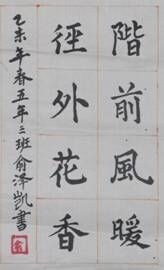 階前風暖
徑外花香
乙未年春五年三班俞澤凱書